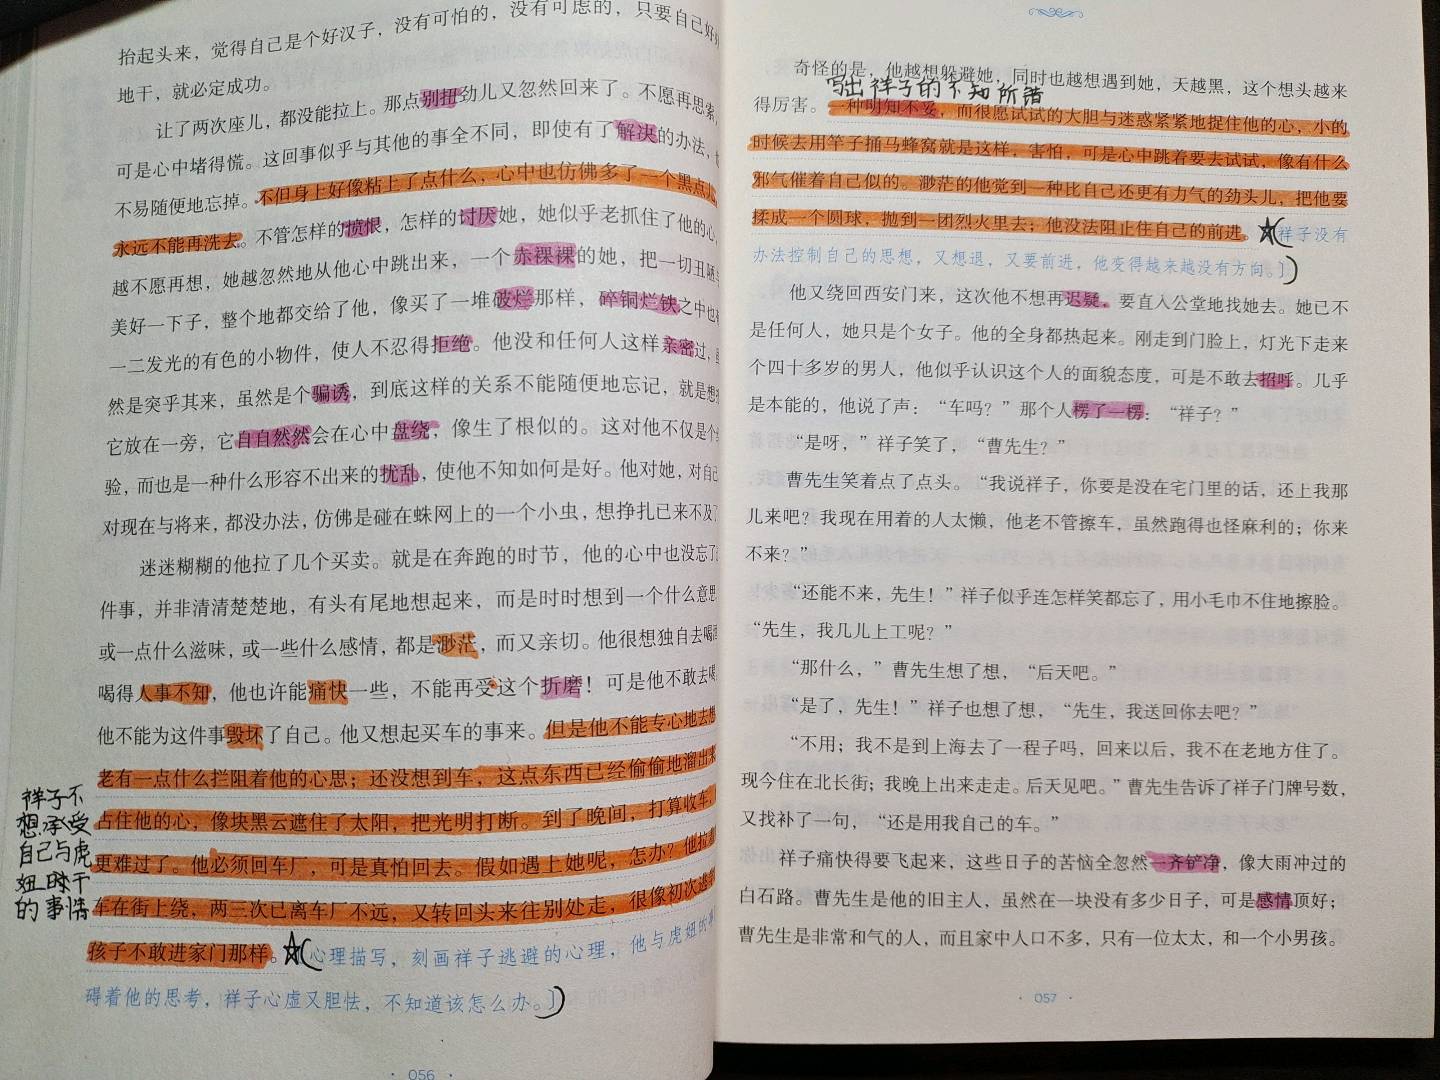 抬起头来，觉得自己是个好汉子，没有可怕的，没有可虑的，只要自己好好
地干，就必定成功。
让了两次座儿，都没能拉上。那点别扭劲儿又忽然回来了。不愿再思索，
可是心中堵得慌。这回事似乎与其他的事全不同，即使有了解决的办法，也
不易随便地忘掉。不但身上好像粘上了点什么，心中也仿佛多了一个黑点儿，
永远不能再洗去。不管怎样的愤恨，怎样的讨厌她，她似乎老抓住了他的心，
越不愿再想，她越忽然地从他心中跳出来，一个赤裸裸的她，把一切丑陋与
美好一下子，整个地都交给了他，像买了一堆破烂那样，碎铜烂铁之中也有
一二发光的有色的小物件，使人不忍得拒绝。他没和任何人这样亲密过，虽
然是突乎其来，虽然是个骗诱，到底这样的关系不能随便地忘记，就是想把
它放在一旁，它自自然然会在心中盘绕，像生了根似的。这对他不仅是个经
验，而也是一种什么形容不出来的扰乱，使他不知如何是好。他对她，对自己，
对现在与将来，都没办法，仿佛是碰在蛛网上的一个小虫，想挣扎已来不及了
迷迷糊糊的他拉了几个买卖。就是在奔跑的时节，他的心中也没忘了这
件事，并非清清楚楚地，有头有尾地想起来，而是时时想到一个什么意思，
或一点什么滋味，或一些什么感情，都是渺茫，而又亲切。他很想独自去喝酒，
喝得人事不知，他也许能痛快一些，不能再受这个折磨！可是他不敢去喝。
他不能为这件事毁坏了自己。他又想起买车的事来。但是他不能专心地去想，
老有一点什么拦阻着他的心思；还没想到车，这点东西已经偷偷地溜出来，
占住他的心，像块黑云遮住了太阳，把光明打断。到了晚间，打算收车，
更难过了。他必须回车厂，可是真怕回去。假如遇上她呢，怎办？他拉着
车在街上绕，两三次已离车厂不远，又转回头来往别处走，很像初次逃学的
孩子不敢进家门那样。（心理描写，刻画祥子逃避的心理，他与虎妞的事
碍着他的思考，祥子心虚又胆怯，不知道该怎么办。］）
祥子不
想承受
自己与虎
妞
的事情
· 056 ·
奇怪的是，他越想躲避她，同时也越想遇到她，天越黑，这个想头越来
写出祥子的不知所措
得厉害。一种明知不妥，而很愿试试的大胆与迷惑紧紧地捉住他的心，小的
时候去用竿子捅马蜂窝就是这样，害怕，可是心中跳着要去试试，像有什么
邪气催着自己似的。渺茫的他觉到一种比自己还更有力气的劲头儿，把他要
揉成一个圆球，抛到一团烈火里去；他没法阻止住自己的前进。（祥子没有
办法控制自己的思想，又想退，又要前进，他变得越来越没有方向。］）
他又绕回西安门来，这次他不想再迟疑，要直入公堂地找她去。她已不
是任何人，她只是个女子。他的全身都热起来。刚走到门脸上，灯光下走来
个四十多岁的男人，他似乎认识这个人的面貌态度，可是不敢去招呼。几乎
是本能的，他说了声：“车吗？”那个人楞了一楞：“祥子？”
“是呀，”祥子笑了，“曹先生？”
曹先生笑着点了点头。“我说祥子，你要是没在宅门里的话，还上我那
儿来吧？我现在用着的人太懒，他老不管擦车，虽然跑得也怪麻利的；你来
不来？”
“还能不来，先生！”祥子似乎连怎样笑都忘了，用小毛巾不住地擦脸。
“先生，我几儿上工呢？”
“那什么，”曹先生想了想，“后天吧。”
“是了，先生！”祥子也想了想，“先生，我送回你去吧？”
“不用；我不是到上海去了一程子吗，回来以后，我不在老地方住了。
现今住在北长街；我晚上出来走走。后天见吧。”曹先生告诉了祥子门牌号数，
又找补了一句，“还是用我自己的车。”
祥子痛快得要飞起来，这些日子的苦恼全忽然一齐铲净，像大雨冲过的
白石路。曹先生是他的旧主人，虽然在一块没有多少日子，可是感情顶好；
曹先生是非常和气的人，而且家中人口不多，只有一位太太，和一个小男孩。
· 057 ·